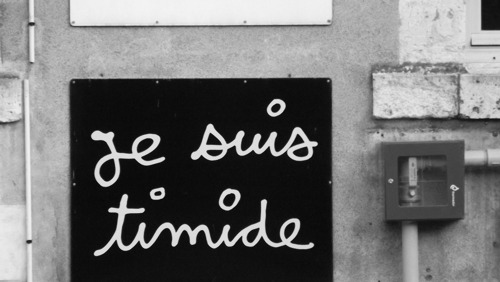 je suis
timide